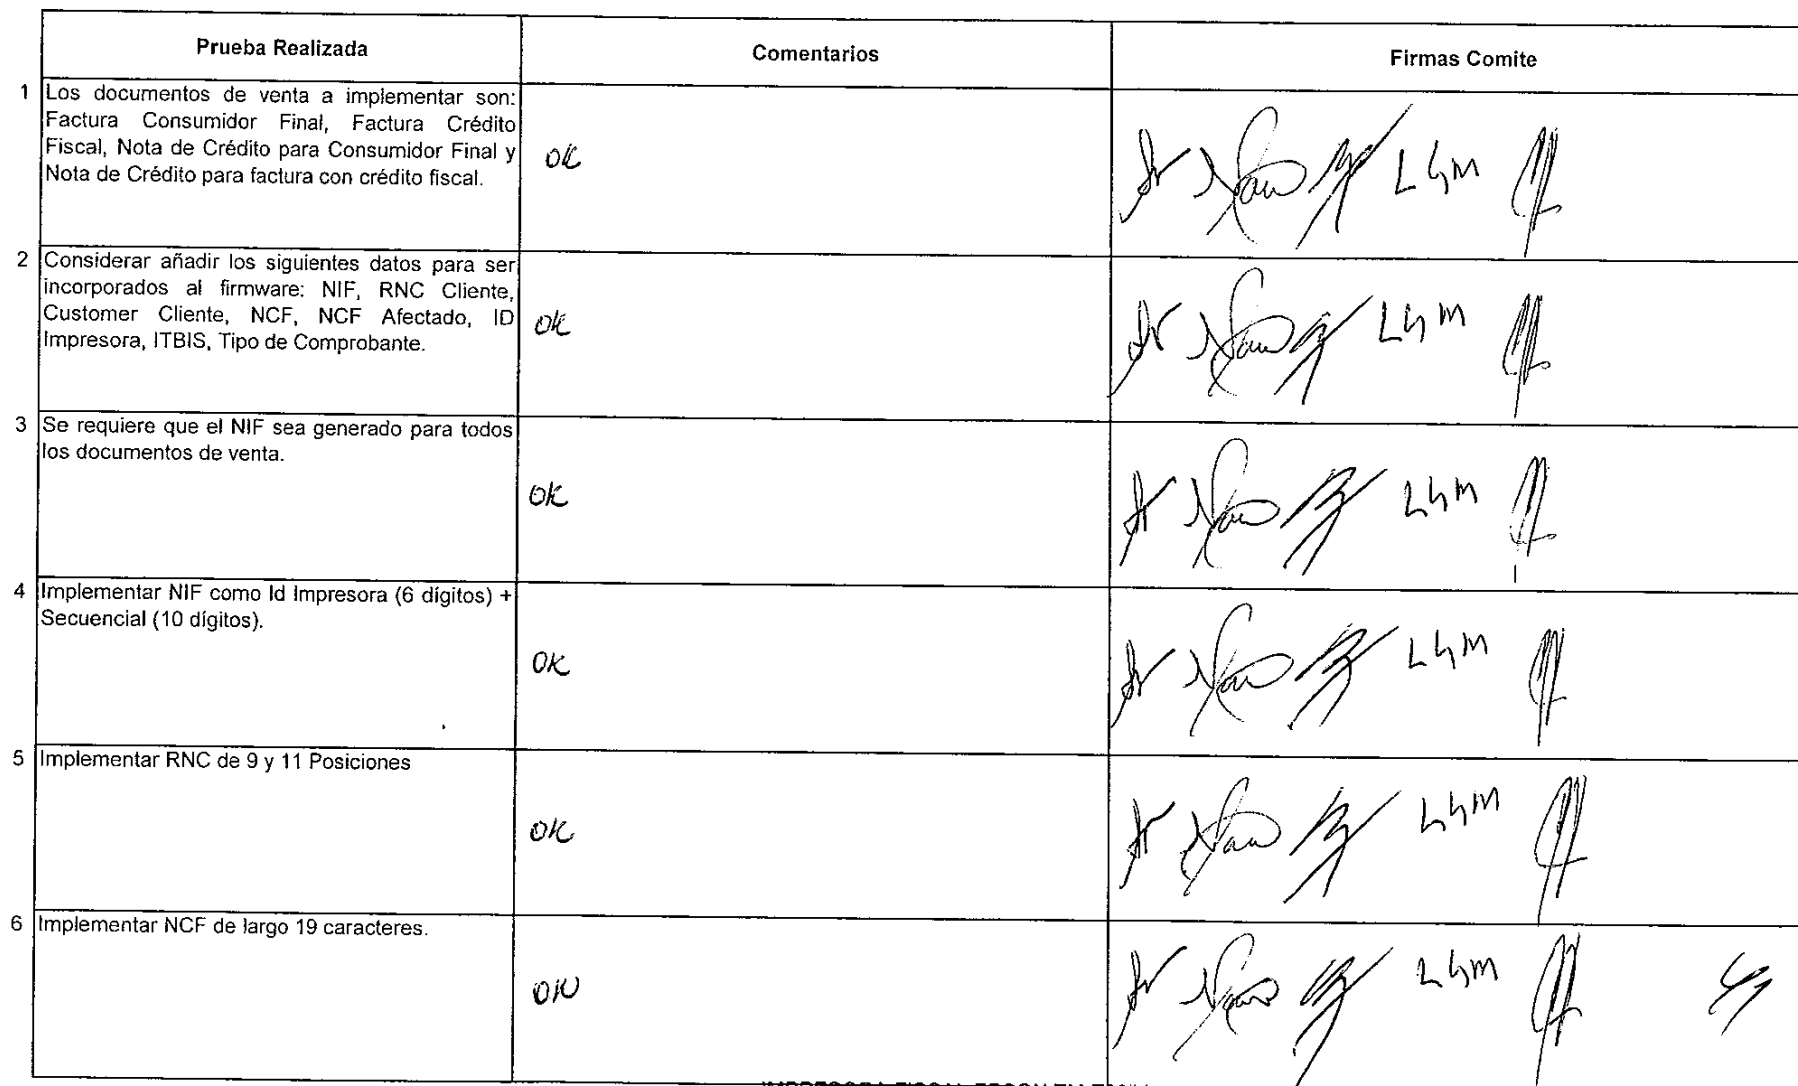 Prueba Realizada
Comentarios
Firmas Comite
1
Los documentos de venta a implementar son:
Factura Consumidor Final, Factura Crédito
Fiscal, Nota de Crédito para Consumidor Final y
Nota de Crédito para factura con crédito fiscal.
OK
LGM
2
Considerar añadir los siguientes datos para ser
incorporados al firmware: NIF, RNC Cliente,
Customer Cliente, NCF, NCF Afectado, ID
Impresora, ITBIS, Tipo de Comprobante.
OK
LGM
3
Se requiere que el NIF sea generado para todos
los documentos de venta.
OK
LGM
4
Implementar NIF como Id Impresora (6 dígitos) +
Secuencial (10 dígitos).
OK
LGM
5
Implementar RNC de 9 y 11 Posiciones
OK
LGM
6
Implementar NCF de largo 19 caracteres.
OK
LGM